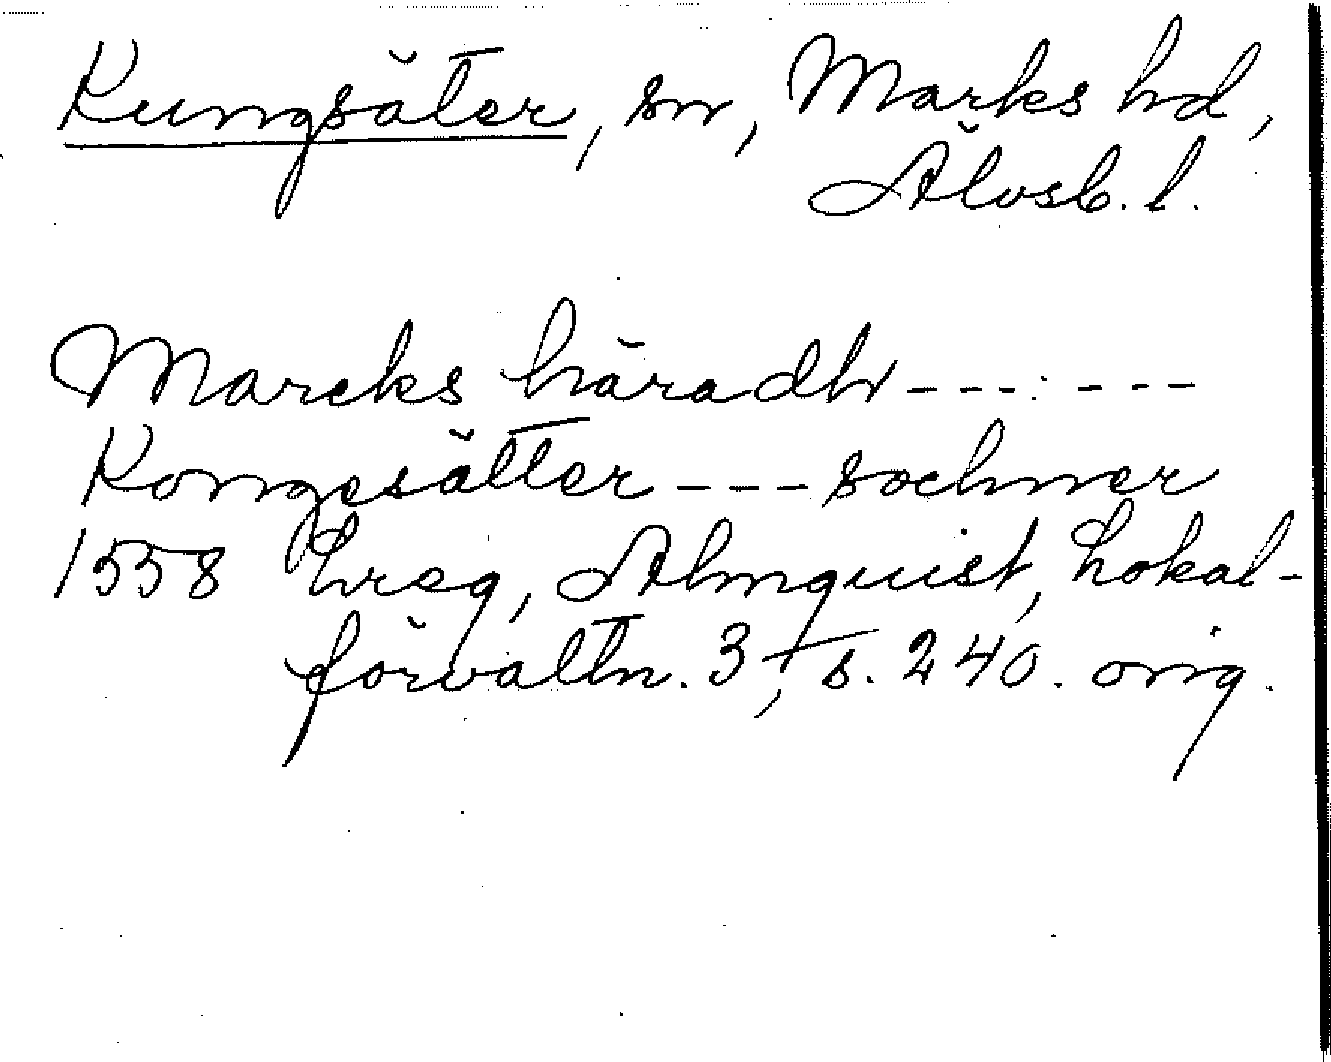 Kungsäter, sn, Marks hd,
Älvsb. l.
Marcks häradh --- ---
Kongesätter --- sochner
1558 Lreg, Almquist, Lokal-
förvaltn. 3, s. 240. orig.